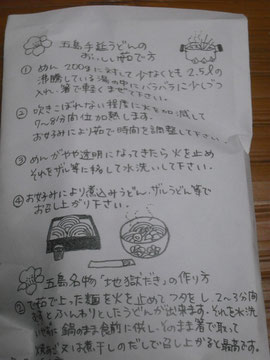 五島手延うどんの
おいしい茹で方
① めん200gに対して少なくとも2.5ℓの
沸騰している湯の中にバラバラに少しづつ
入れ、箸で軽くまぜて下さい。
② 吹きこぼれない程度に火を加減して
7〜8分間位加熱します。
お好みにより茹で時間を調整して下さい。
③ めんがやや透明になってきたら火を止め
それをザル等に移して水洗いして下さい。
④ お好みにより煮込みうどん、ザルうどん等で
お召し上がり下さい。
五島名物「地獄だき」の作り方
茹で上った麺を火を止めてフタをし、2〜3分間
するとふんわりとしたうどんが出来ます。それを水洗
いせずに鍋のまま食前に供し、そのまま箸で取って
又は煮干しのだしで召し上がると最高です。